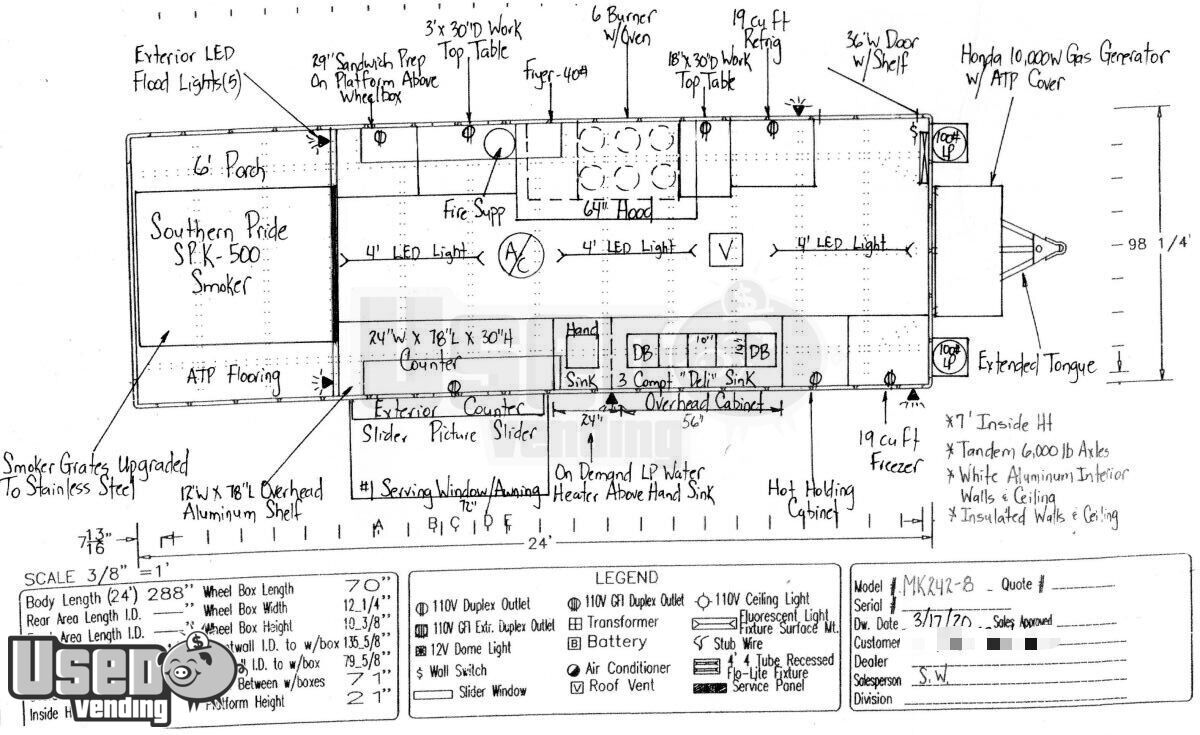 Exterior LED
Flood Lights(5)
29" Sandwich Prep
On Platform Above
Wheelbox
3' x 30"D Work
Top Table
Fryer-40#
6 Burner
w/Oven
18"x30"D Work
Top Table
19 cu ft
Refrig
36"W Door
w/Shelf
Honda 10,000w Gas Generator
w/ ATP Cover
6' Porch
100#
LP
$
Fire Supp
64" Hood
Southern Pride
SPK-500
Smoker
4' LED Light
A/C
4' LED Light
V
4' LED Light
98 1/4"
24"W x 78"L x 30"H
Counter
Hand
Sink
DB
10"
DB
3 Compt "Deli" Sink
100#
LP
ATP Flooring
Extended Tongue
Exterior Counter
Slider Picture Slider
24"
Overhead Cabinet
56"
*7' Inside Ht
* Tandem 6,000 lb Axles
* White Aluminum Interior
Walls & Ceiling
* Insulated Walls & Ceiling
19 cu ft
Freezer
Smoker Grates Upgraded
To Stainless Steel
12"W x 78"L Overhead
Aluminum Shelf
#1 Serving Window/Awning
72"
On Demand LP Water
Heater Above Hand Sink
Hot Holding
Cabinet
A B C D E
7 13/16"
24'
SCALE 3/8" =1'
Body Length (24') 288"
Rear Area Length I.D.
Area Length I.D.
Inside H
Wheel Box Length 70"
Wheel Box Width 12_1/4"
Wheel Box Height 10_3/8"
I.D. to w/box 135_5/8"
I.D. to w/box 79_5/8"
Between w/boxes 71"
Platform Height 21"
LEGEND
110V Duplex Outlet
110V GFI Extr. Duplex Outlet
12V Dome Light
$ Wall Switch
Slider Window
110V GFI Duplex Outlet
Transformer
B Battery
Air Conditioner
V Roof Vent
110V Ceiling Light
Fluorescent Light
Fixture Surface Mt.
Stub Wire
4' 4 Tube Recessed
Flo-Lite Fixture
Service Panel
Model # MK242-8 Quote #
Serial #
Dw. Date 3/17/20 Sales Approved
Customer
Dealer
Salesperson S.W.
Division
Used
vending
$
Used
vending
$